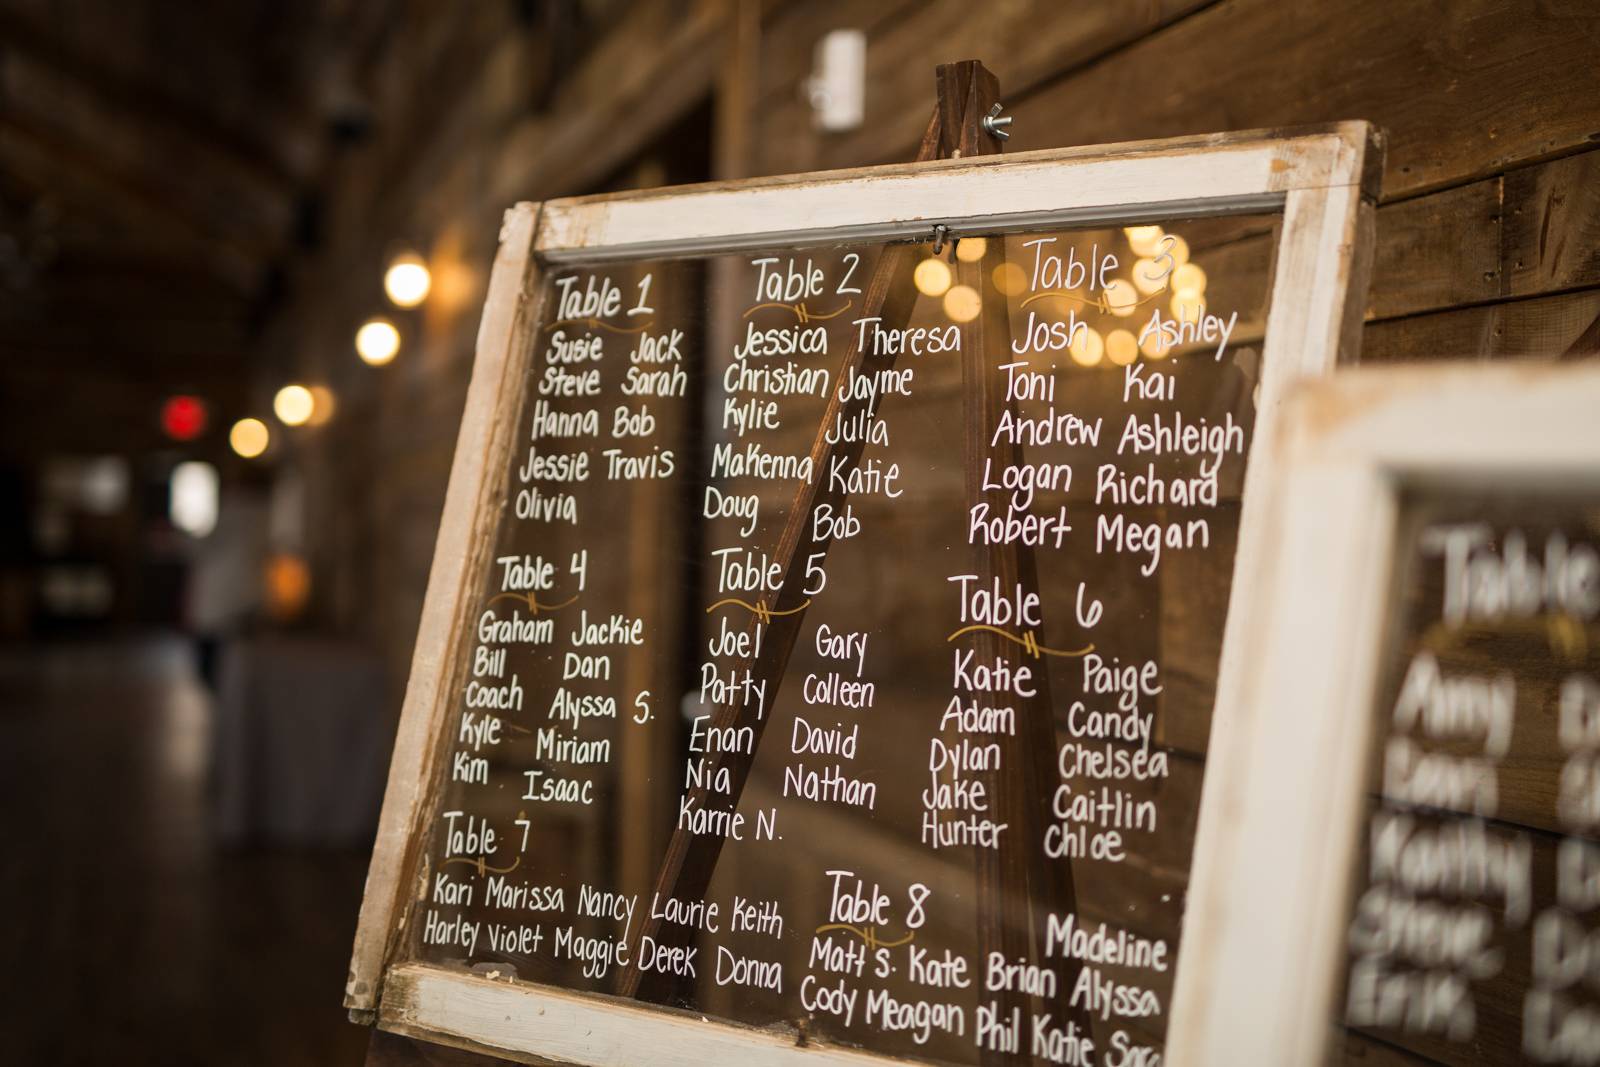 Table 1
Susie Jack
Steve Sarah
Hanna Bob
Jessie Travis
Olivia
Table 2
Jessica Theresa
Christian Jayme
Kylie Julia
Makenna Katie
Doug Bob
Table 3
Josh Ashley
Toni Kai
Andrew Ashleigh
Logan Richard
Robert Megan
Table 4
Graham Jackie
Bill Dan
Coach Alyssa S.
Kyle Miriam
Kim Isaac
Table 5
Joel Gary
Patty Colleen
Enan David
Nia Nathan
Karrie N.
Table 6
Katie Paige
Adam Candy
Dylan Chelsea
Jake Caitlin
Hunter Chloe
Table 7
Kari Marissa Nancy Laurie Keith
Harley Violet Maggie Derek Donna
Table 8
Madeline
Matt S. Kate Brian Alyssa
Cody Meagan Phil Katie
Table
Amy
Kathy
Erik